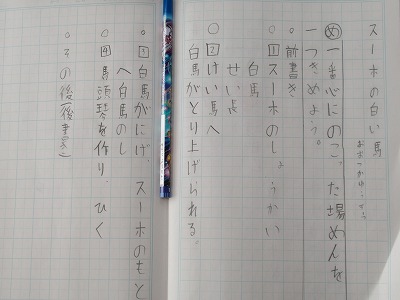 スーホの白い馬
おおつかゆうぞう
め 一番心にのこった場めんを
一つきめよう。
○前書き
○1スーホのしょうかい
白馬
せい長
○2けい馬へ
白馬がとり上げられる。
○3白馬がにげ、スーホのもと
へ白馬のし
○4馬頭琴を作り、ひく
○その後(後書き)